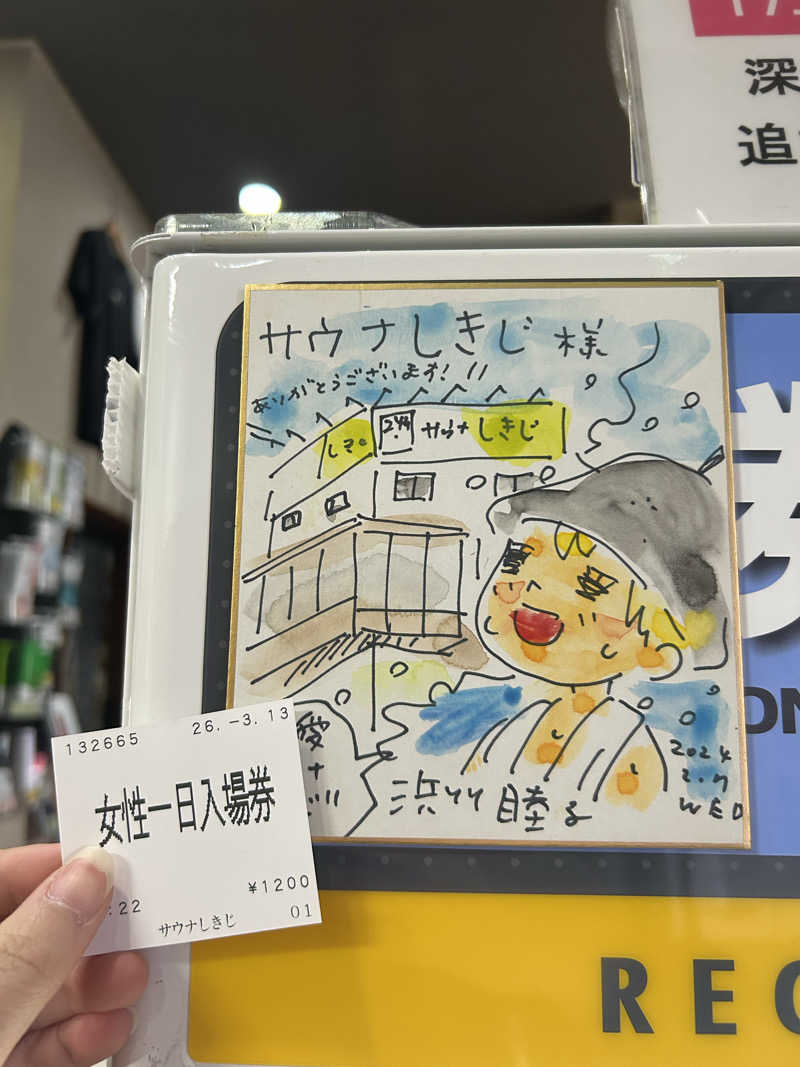 深
追
サウナしきじ 様
ありがとうございます!!!
しきじ
24H
サウナ しきじ
愛
ナ
浜ツツ 睦子
2024
2.7
WED
ON
132665
26.-3.13
女性一日入場券
¥1200
:22
サウナしきじ
01
REC